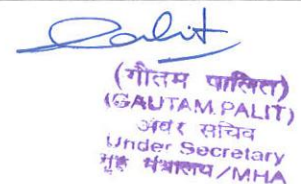 Palit
(गौतम पालित)
(GAUTAM PALIT)
अवर सचिव
Under Secretary
गृह मंत्रालय/MHA